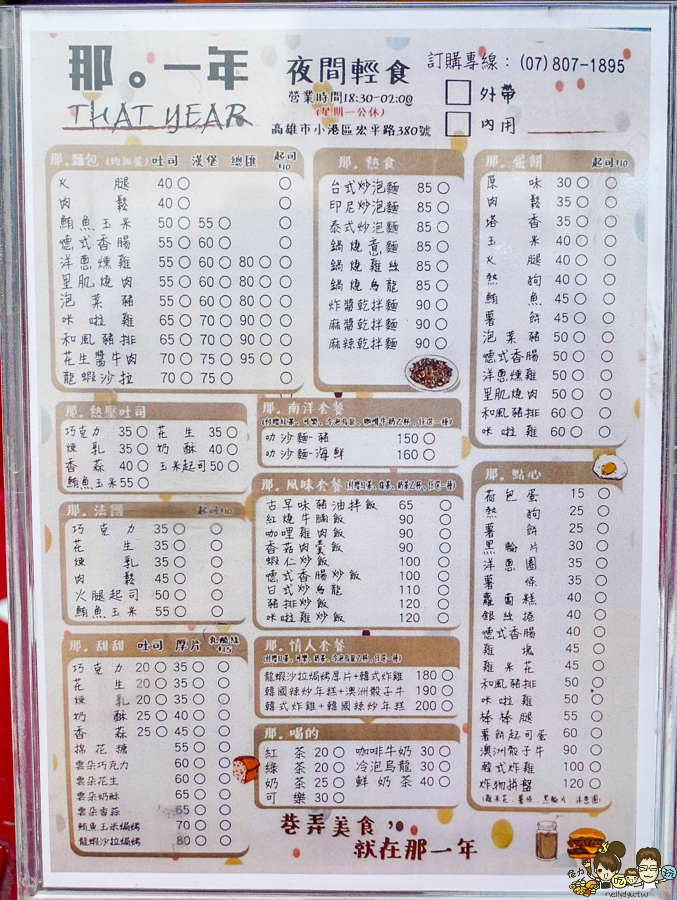 那。一年
THAT YEAR
夜間輕食
營業時間18:30-02:00
(星期一公休)
高雄市小港區宏平路380號
訂購專線：(07)807-1895
外帶
內用
那.麵包(均加蛋) 吐司 漢堡 總匯 起司+10
火腿 40
肉鬆 40
鮪魚玉米 50 55
德式香腸 55 60
洋蔥燻雞 55 60 80
里肌燒肉 55 60 80
泡菜豬 55 60 80
咔啦雞 65 70 90
和風豬排 65 70 90
花生醬牛肉 70 75 95
龍蝦沙拉 70 75
那.熱壓吐司
巧克力 35 花生 35
煉乳 35 奶酥 40
香蒜 40 玉米起司 50
鮪魚玉米 55
那.法國 起司+10
巧克力 35
花生 35
煉乳 35
肉鬆 45
火腿起司 50
鮪魚玉米 55
那.甜甜 吐司 厚片 乳酪絲+15
巧克力 20 35
花生 20 35
煉乳 20 35
奶酥 25 40
香蒜 25 45
棉花糖 55
雲朵巧克力 60
雲朵花生 60
雲朵奶酥 65
雲朵香蒜 65
鮪魚玉米焗烤 70
龍蝦沙拉焗烤 80
那.熱食
台式炒泡麵 85
印尼炒泡麵 85
泰式炒泡麵 85
鍋燒意麵 85
鍋燒雞絲 85
鍋燒烏龍 85
炸醬乾拌麵 90
麻醬乾拌麵 90
麻辣乾拌麵 90
那.南洋套餐
叻沙麵-豬 150
叻沙麵-海鮮 160
那.風味套餐(付贈紅茶、綠茶、奶茶乙杯,任選一種)
古早味豬油拌飯 65
紅燒牛腩飯 90
咖哩雞肉飯 90
香菇肉羹飯 90
蝦仁炒飯 100
德式香腸炒飯 100
日式炒烏龍 110
豬排炒飯 120
咔啦雞炒飯 120
那.情人套餐
龍蝦沙拉焗烤厚片+韓式炸雞 180
韓國辣炒年糕+澳洲骰子牛 190
韓式炸雞+韓國辣炒年糕 200
那.喝的
紅茶 20 咖啡牛奶 30
綠茶 20 冷泡烏龍 30
奶茶 25 鮮奶茶 40
可樂 30
那.蛋餅 起司+10
原味 30
肉鬆 35
塔香 35
玉米 40
火腿 40
熱狗 40
鮪魚 45
薯餅 45
泡菜豬 50
德式香腸 50
洋蔥燻雞 50
里肌燒肉 50
和風豬排 60
咔啦雞 60
那.點心
荷包蛋 15
熱狗 25
薯餅 25
黑輪片 30
洋蔥圈 35
薯條 35
蘿蔔糕 40
銀絲捲 40
德式香腸 40
雞塊 45
雞米花 45
和風豬排 50
咔啦雞 50
棒棒腿 55
薯餅起司蛋 60
澳洲骰子牛 90
韓式炸雞 100
炸物拼盤 120
(雞米花.薯條.黑輪片.洋蔥圈)
巷弄美食，
就在那一年
nellydyu.tw